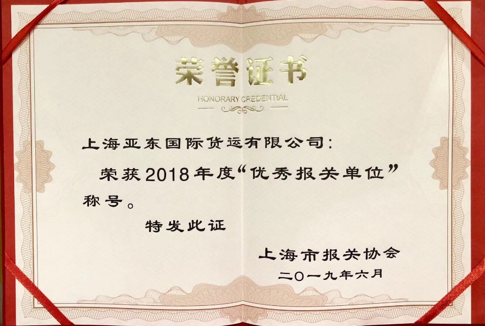 荣誉证书
HONORARY CREDENTIAL
上海亚东国际货运有限公司:
荣获2018年度“优秀报关单位”
称号。
特发此证
上海市报关协会
二〇一九年六月